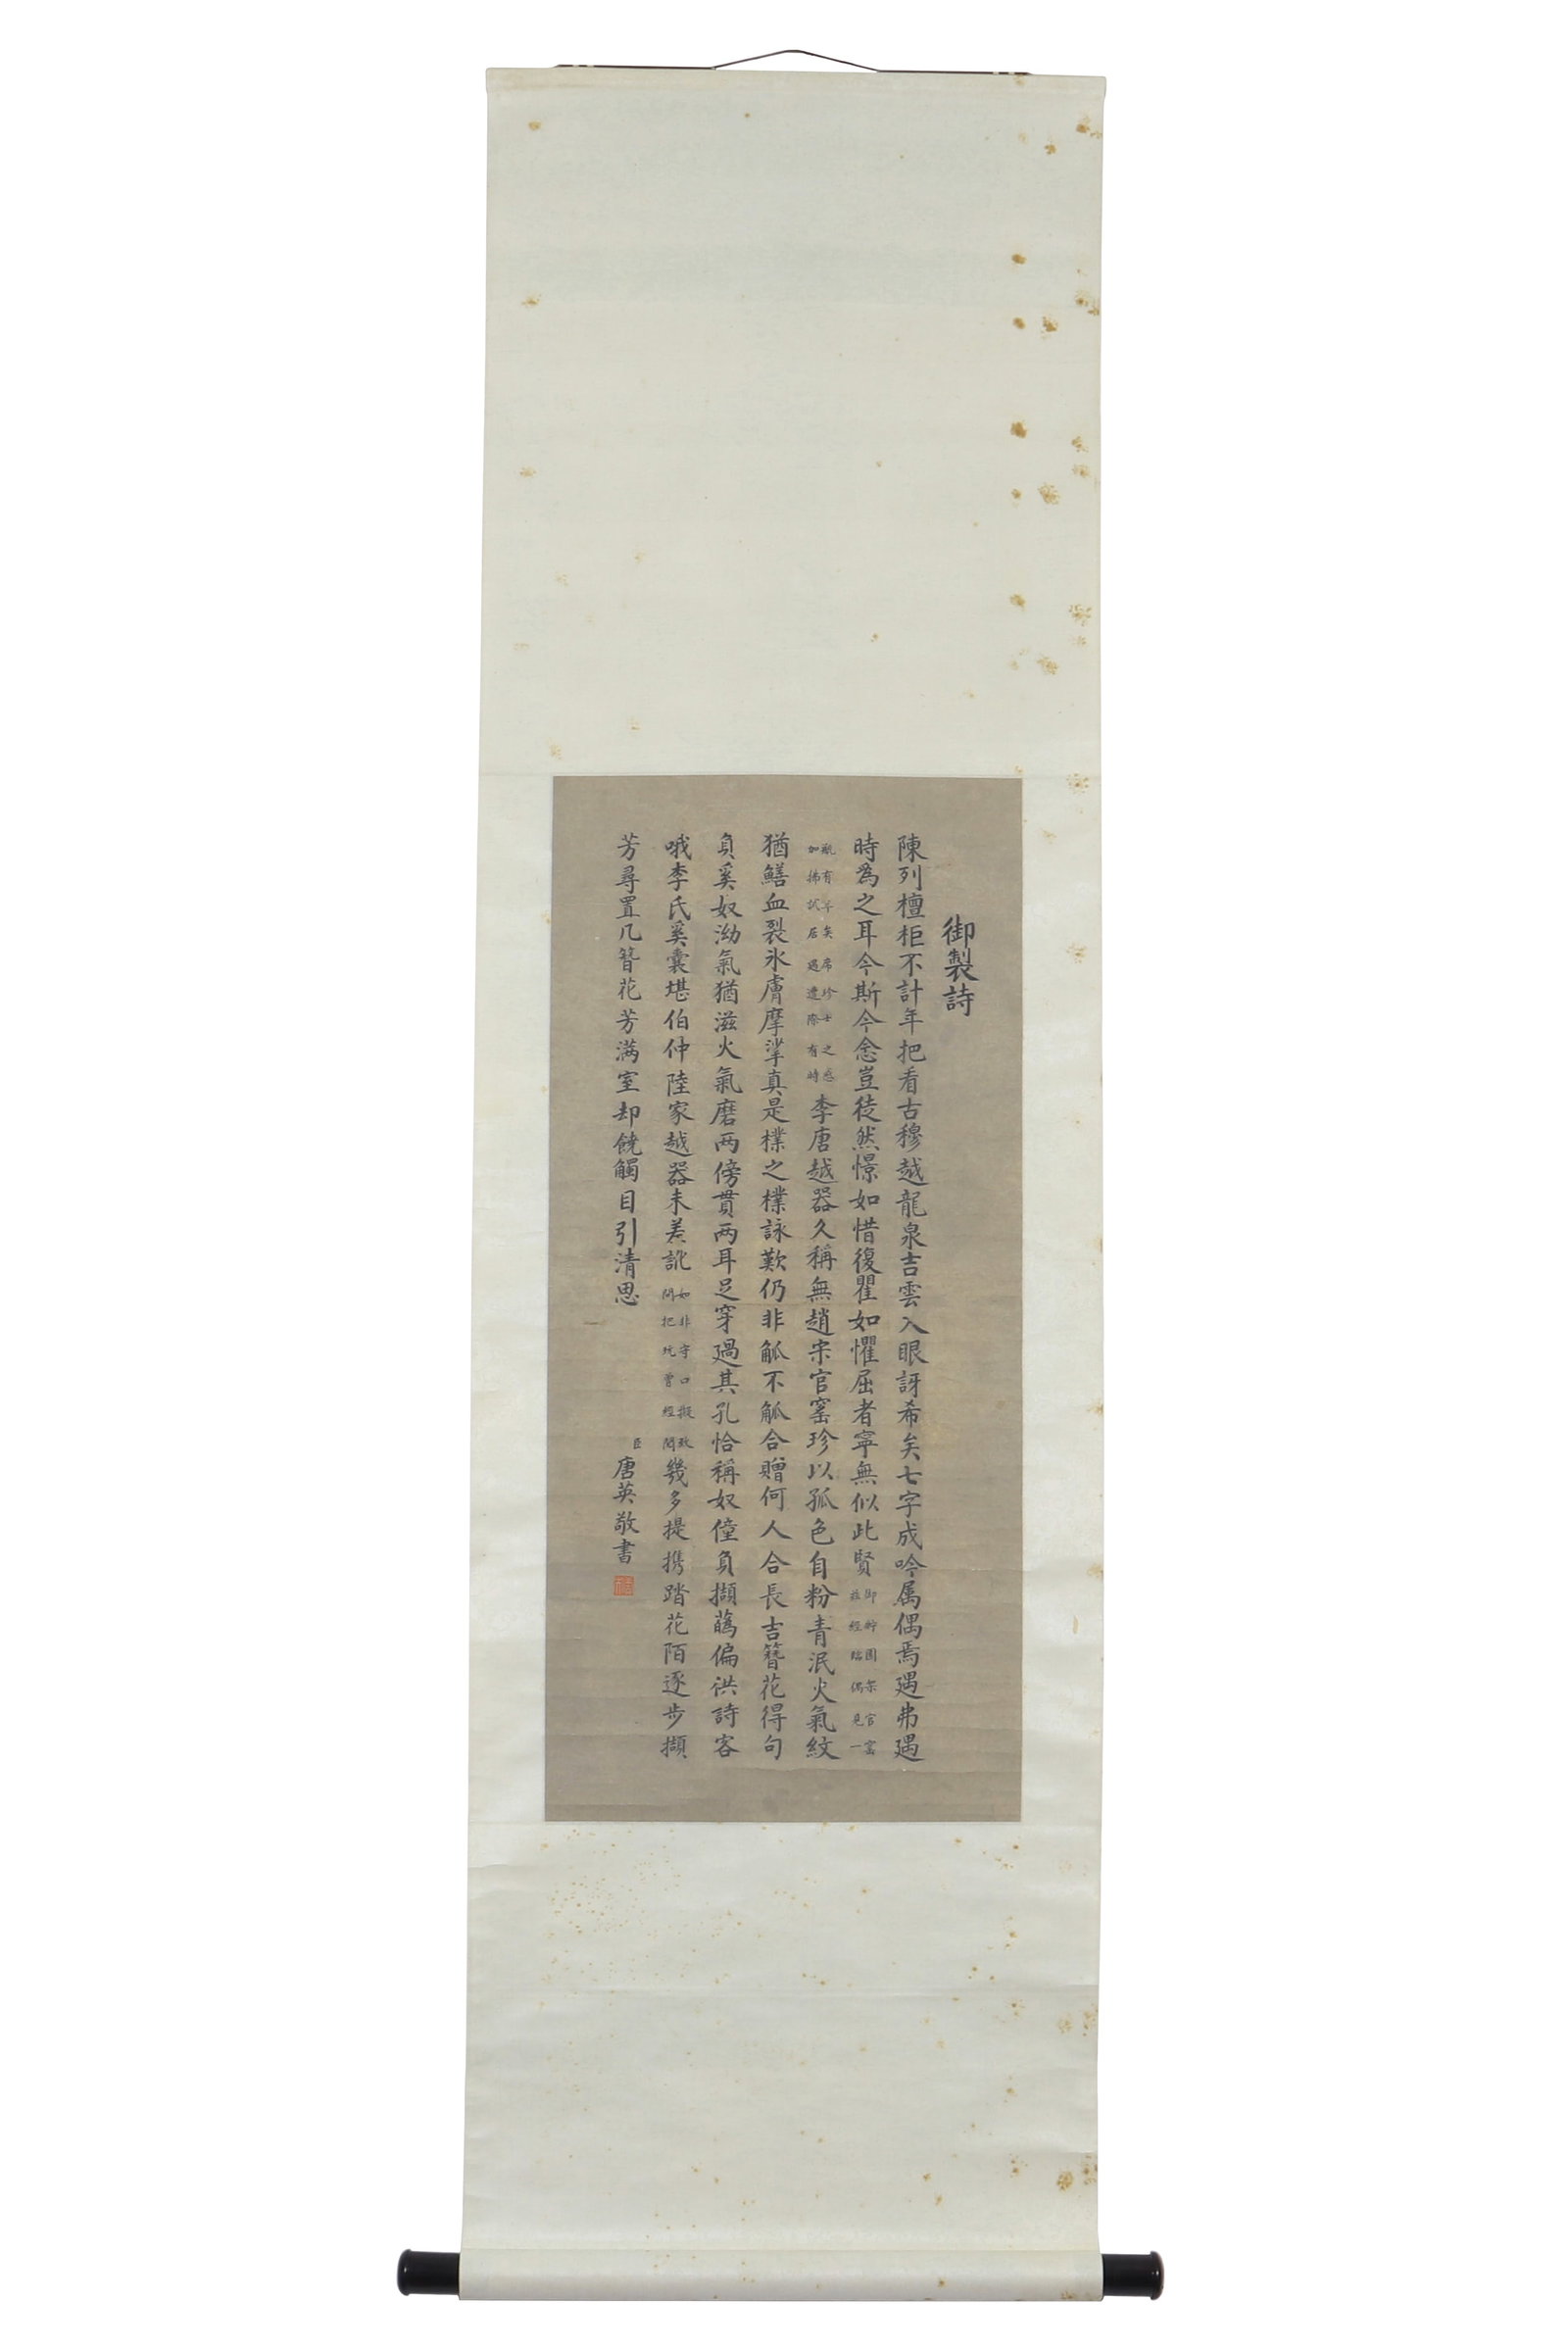 御製詩
陳列檀柜不計年把看古穆越龍泉吉雲入眼訝希矣七字成吟属偶焉遇弗遇
時為之耳今斯今念豈徒然憬如惜復瞿如懼屈者寧無似此賢
瓶有年矣席珍士之感
加拂拭居遇遭際有時
李唐越器久稱無趙宋官窰珍以孤色自粉青泯火氣紋
猶鱔血裂氷膚摩挲真是樸之樸詠歎仍非觚不觚合贈何人合長吉簪花得句
負奚奴泑氣猶滋火氣磨两傍貫两耳足穿過其孔恰稱奴僮負擷蘤偏供詩客
哦李氏奚囊堪伯仲陸家越器未差訛
如非守口擬致
問把坑曾經閱
幾多提携踏花陌逐步擷
芳尋置几簪花芳满室却饒觸目引清思
臣唐英敬書